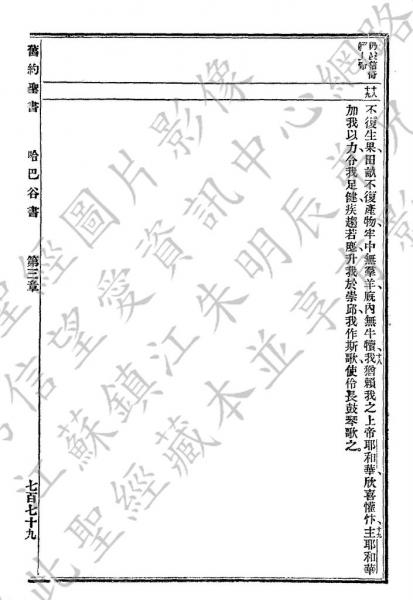 不復生果、田畝不復產物、牢中無羣羊、廐內無牛犢、十八我猶賴我之上帝耶和華、欣喜懽忭、十九主耶和華
加我以力、令我足健疾趨若麀、升我於崇邱、我作斯歌、使伶長鼓琴歌之。
舊約聖書 哈巴谷書 第三章 七百七十九
聖經圖片影像
信望愛資訊中心網路
江蘇鎮江朱明辰弟兄
此聖經藏本並享